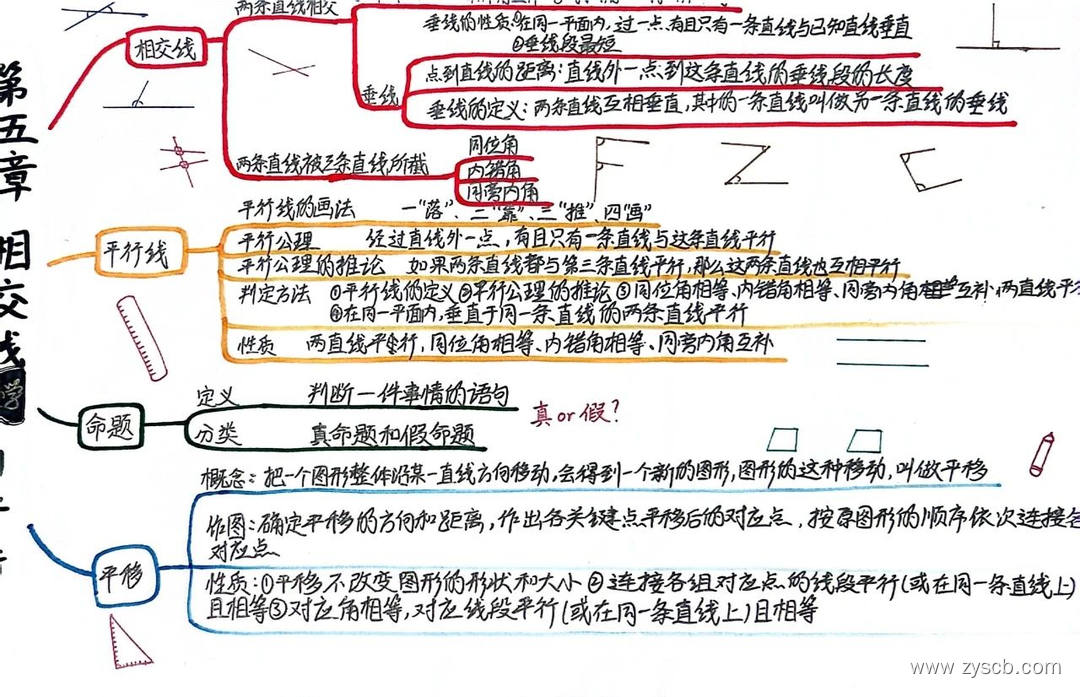 第五章 相交线
相交线
两条直线相交
垂线的性质①在同一平面内,过一点有且只有一条直线与已知直线垂直
②垂线段最短
垂线
点到直线的距离:直线外一点到这条直线的垂线段的长度
垂线的定义:两条直线互相垂直,其中的一条直线叫做另一条直线的垂线
两条直线被三条直线所截
同位角
内错角
同旁内角
平行线
平行线的画法 一“落”、二“靠”、三“推”、四“画”
平行公理 经过直线外一点,有且只有一条直线与这条直线平行
平行公理的推论 如果两条直线都与第三条直线平行,那么这两条直线也互相平行
判定方法 ①平行线的定义②平行公理的推论③同位角相等、内错角相等、同旁内角互补,两直线平行
④在同一平面内,垂直于同一条直线的两条直线平行
性质 两直线平行,同位角相等、内错角相等、同旁内角互补
命题
定义 判断一件事情的语句
分类 真命题和假命题
真or假?
平移
概念:把一个图形整体沿某一直线方向移动,会得到一个新的图形,图形的这种移动,叫做平移
作图:确定平移的方向和距离,作出各关键点平移后的对应点,按原图形的顺序依次连接各
对应点
性质:①平移不改变图形的形状和大小②连接各组对应点的线段平行(或在同一条直线上)
且相等③对应角相等,对应线段平行(或在同一条直线上)且相等
www.zyscb.com